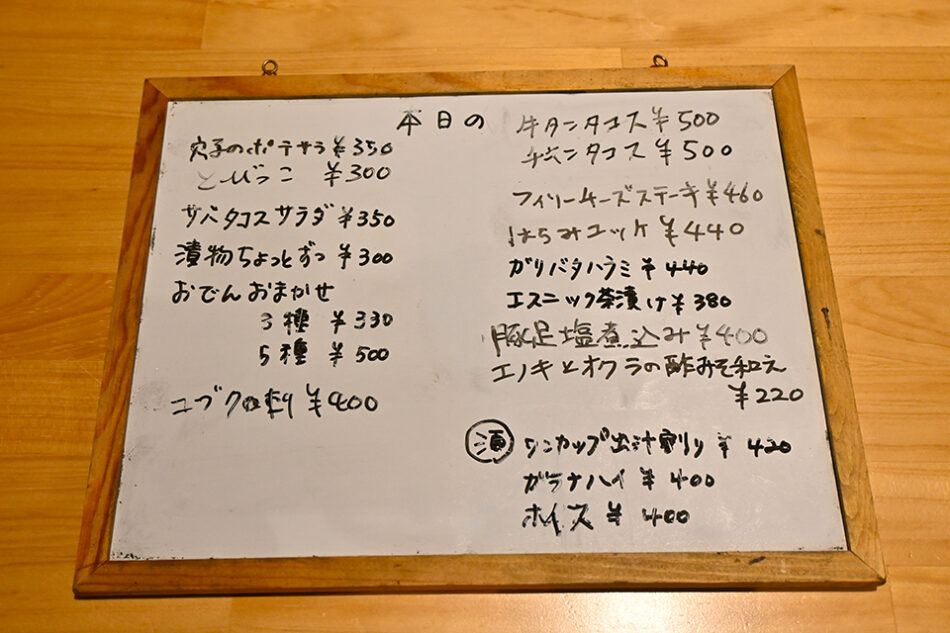 本日の
穴子のポテサラ ¥350
とびっこ ¥300
サバタコスサラダ ¥350
漬物ちょっとずつ ¥300
おでんおまかせ
3種 ¥330
5種 ¥500
コブクロ刺 ¥400
牛タンタコス ¥500
タコス ¥500
フィリーチーズステーキ ¥460
はらみユッケ ¥440
ガリバタハラミ ¥440
エスニック茶漬け ¥380
豚足塩煮込み ¥400
エノキとオクラの酢みそ和え
¥220
酒 ワンカップ出汁割り ¥420
ガラナハイ ¥400
ホイス ¥400